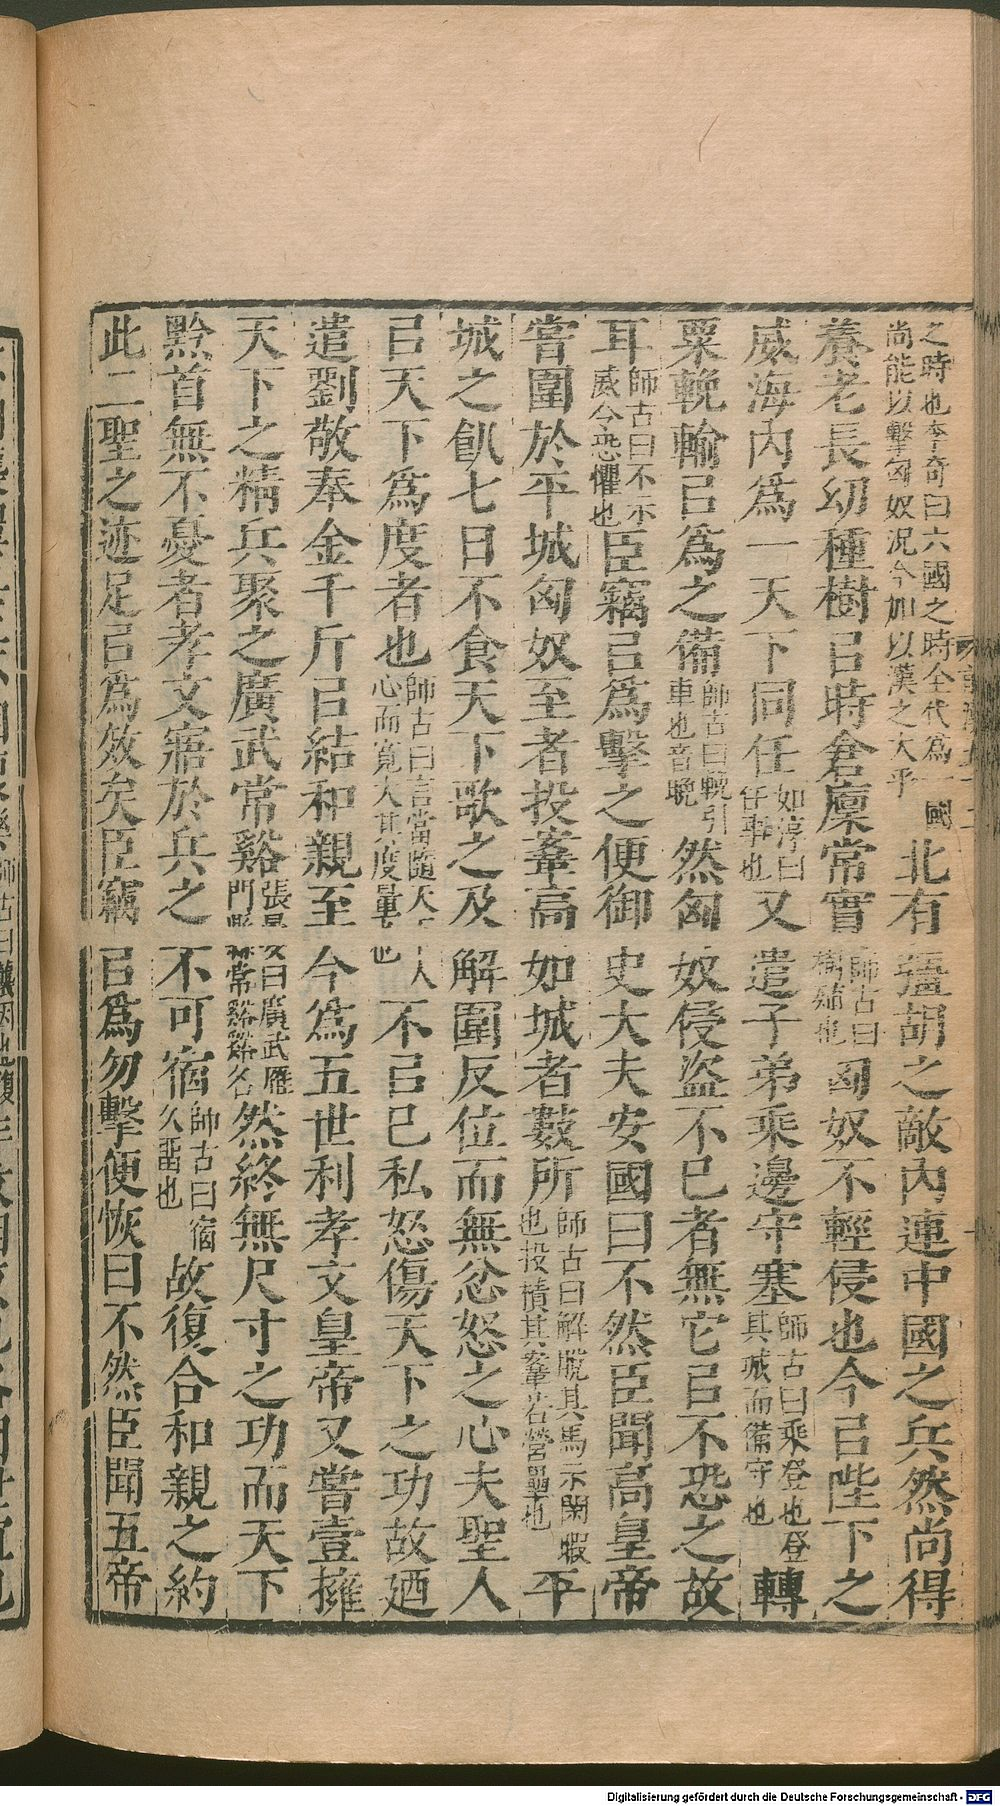 之時也李奇曰六國之時全代爲一國尚能以擊匈奴況今加以漢之大乎北有彊胡之敵內連中國之兵然尚得
養老長幼種樹㠯時倉廩常實師古曰樹殖也匈奴不輕侵也今㠯陛下之
威海內爲一天下同任如淳曰任事也又遣子弟乘邊守塞師古曰乘登也登其城而備守也轉
粟輓輸㠯爲之備師古曰輓引車也音晚然匈奴侵盜不已者無它㠯不恐之故
耳師古曰不示威令恐懼也臣竊㠯爲擊之便御史大夫安國曰不然臣聞高皇帝
嘗圍於平城匈奴至者投鞌高如城者數所師古曰解脫其馬示閑暇也投積其鞌若營壘也平
城之飢七日不食天下歌之及解圍反位而無忿怒之心夫聖人
㠯天下爲度者也師古曰言當隨天下人心而寬大其度量也不㠯己私怒傷天下之功故廼
遣劉敬奉金千斤㠯結和親至今爲五世利孝文皇帝又嘗壹擁
天下之精兵聚之廣武常谿張晏曰廣武鴈門縣常谿谿名然終無尺寸之功而天下
黔首無不憂者孝文寤於兵之不可宿師古曰宿久畱也故復合和親之約
此二聖之迹足㠯爲效矣臣竊㠯爲勿擊便恢曰不然臣聞五帝
Digitalisierung gefördert durch die Deutsche Forschungsgemeinschaft - DFG